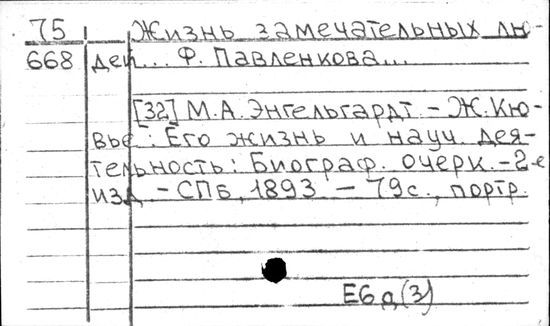 75 Жизнь замечательных лю-
668 дей... Ф. Павленкова...
[32] М.А. Энгельгардт. - Ж. Кю-
вье: Его жизнь и науч. дея-
тельность: Биограф. очерк. - 2-е
изд. - СПб, 1893 - 79с., портр.
Е6д(3)